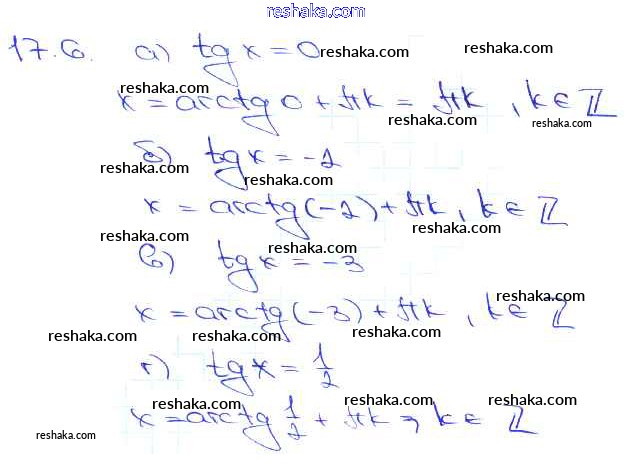 reshaka.com
17.6. а) tg x = 0 reshaka.com reshaka.com
reshaka.com
x = arctg 0 + πk = πk, k ∈ ℤ
reshaka.com reshaka.com
б) tg x = -2
reshaka.com reshaka.com
x = arctg(-2) + πk, k ∈ ℤ
reshaka.com reshaka.com reshaka.com
в) tg x = -3
reshaka.com
x = arctg(-3) + πk, k ∈ ℤ
reshaka.com reshaka.com reshaka.com reshaka.com
г) tg x = 1/2
reshaka.com reshaka.com reshaka.com
x = arctg 1/2 + πk, k ∈ ℤ
reshaka.com reshaka.com reshaka.com